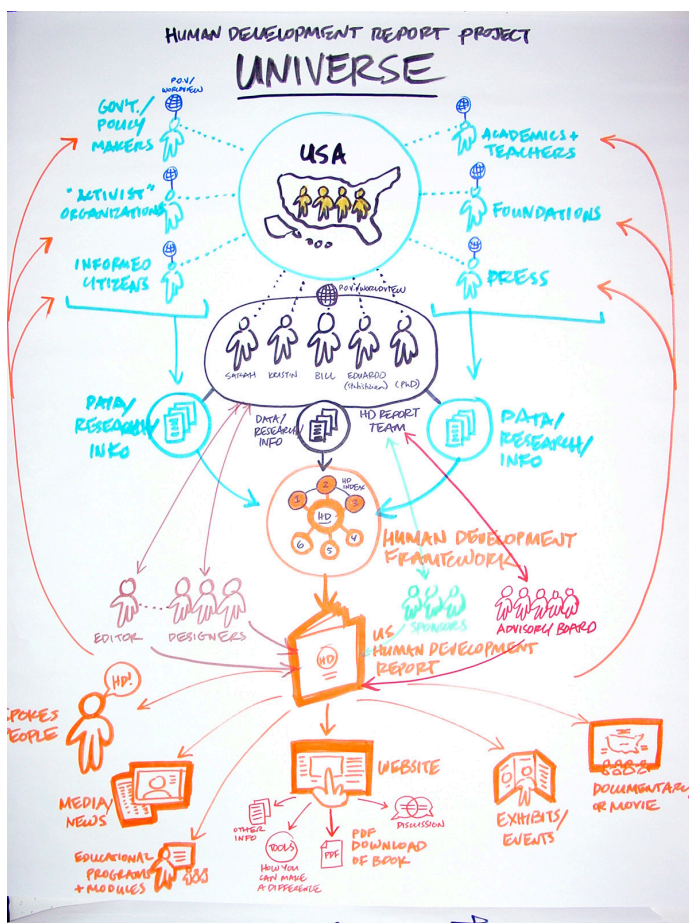 HUMAN DEVELOPMENT REPORT PROJECT
UNIVERSE
P.O.V./
WORLDVIEW
GOV'T./
POLICY
MAKERS
"ACTIVIST"
ORGANIZATIONS
INFORMED
CITIZENS
USA
ACADEMICS +
TEACHERS
FOUNDATIONS
PRESS
P.O.V./WORLDVIEW
SARAH
KRISTIN
BILL
EDUARDO
(PhD)
DATA/
RESEARCH/
INFO
DATA/
RESEARCH/
INFO
HD REPORT
TEAM
DATA/
RESEARCH/
INFO
HD
INDEX
1
2
3
HD
6
5
4
HUMAN DEVELOPMENT
FRAMEWORK
EDITOR
DESIGNERS
SPONSORS
ADVISORY BOARD
HD
US
HUMAN DEVELOPMENT
REPORT
HD!
SPOKES
PEOPLE
MEDIA/
NEWS
EDUCATIONAL
PROGRAMS
+ MODULES
WEBSITE
OTHER
INFO
TOOLS
HOW YOU
CAN MAKE
A DIFFERENCE
PDF
PDF
DOWNLOAD
OF BOOK
DISCUSSION
EXHIBITS/
EVENTS
DOCUMENTARY
OR MOVIE